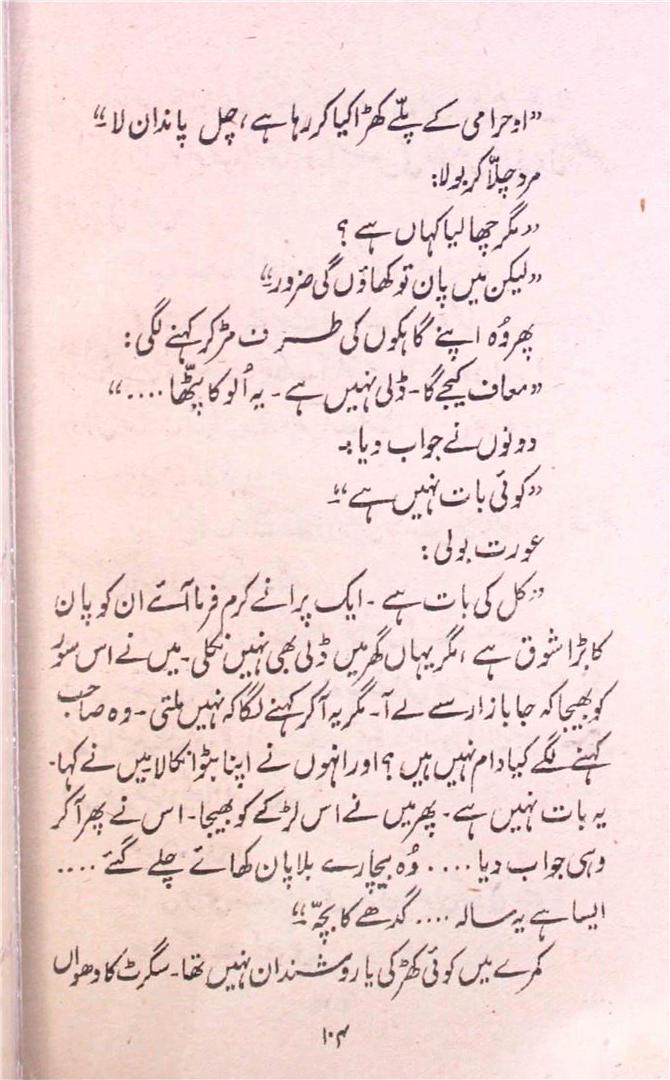 ”اوحرامی کے پلّے کھڑا کیا کر رہا ہے، چل پاندان لا۔“
مرد چلّا کر بولا:
”مگر چھالیا کہاں ہے؟
”لیکن میں پان تو کھاؤں گی ضرور۔“
پھر وُہ اپنے گاہکوں کی طرف مڑ کر کہنے لگی:
”معاف کیجے گا۔ ڈلی نہیں ہے۔ یہ اُلو کا پٹّھا ....“
دونوں نے جواب دیا:۔
”کوئی بات نہیں ہے۔“
عورت بولی:
”کل کی بات ہے۔ ایک پرانے کرم فرما آئے ان کو پان
کا بڑا شوق ہے، مگر یہاں گھر میں ڈلی بھی نہیں نکلی۔ میں نے اس سور
کو بھیجا کہ جا بازار سے لے آ۔ مگر یہ آ کر کہنے لگا کہ نہیں ملتی۔ وہ صاحب
کہنے لگے کیا دام نہیں ہیں؟ اور انہوں نے اپنا بٹوا نکالا میں نے کہا۔
یہ بات نہیں ہے۔ پھر میں نے اس لڑکے کو بھیجا۔ اس نے پھر آ کر
وہی جواب دیا .... وُہ بیچارے بلا پان کھائے چلے گئے ....
ایسا ہے یہ سالہ .... گدھے کا بچّہ۔“
کمرے میں کوئی کھڑکی یا روشندان نہیں تھا۔ سگرٹ کا دھواں
۱۰۴